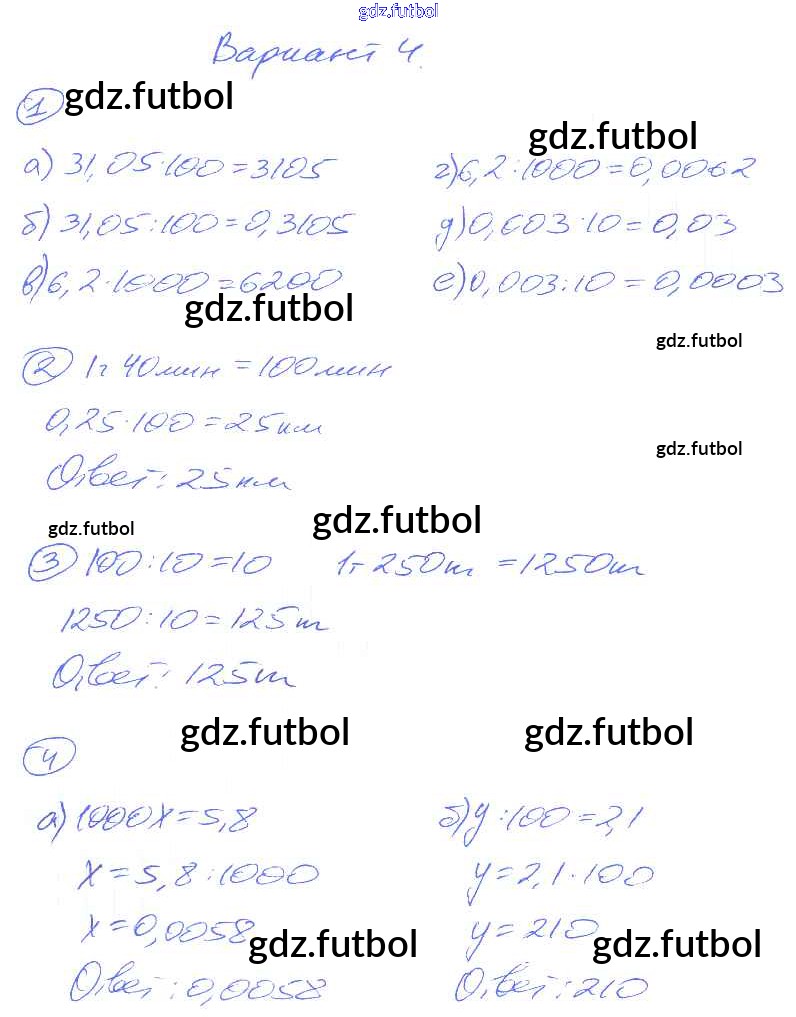 gdz.futbol
Вариант 4.
1 gdz.futbol
gdz.futbol
а) 31,05·100=3105
г) 6,2:1000=0,0062
б) 31,05:100=0,3105
д) 0,003·10=0,03
в) 6,2·1000=6200
е) 0,003:10=0,0003
gdz.futbol
gdz.futbol
2 1ч 40мин=100мин
0,25·100=25км
gdz.futbol
Ответ: 25км
gdz.futbol
gdz.futbol
3 100:10=10 1т 250кг =1250кг
1250:10=125кг
Ответ: 125кг
gdz.futbol gdz.futbol
4
а) 1000x=5,8
б) y:100=2,1
x=5,8:1000
y=2,1·100
x=0,0058
y=210
gdz.futbol gdz.futbol
Ответ: 0,0058
Ответ: 210